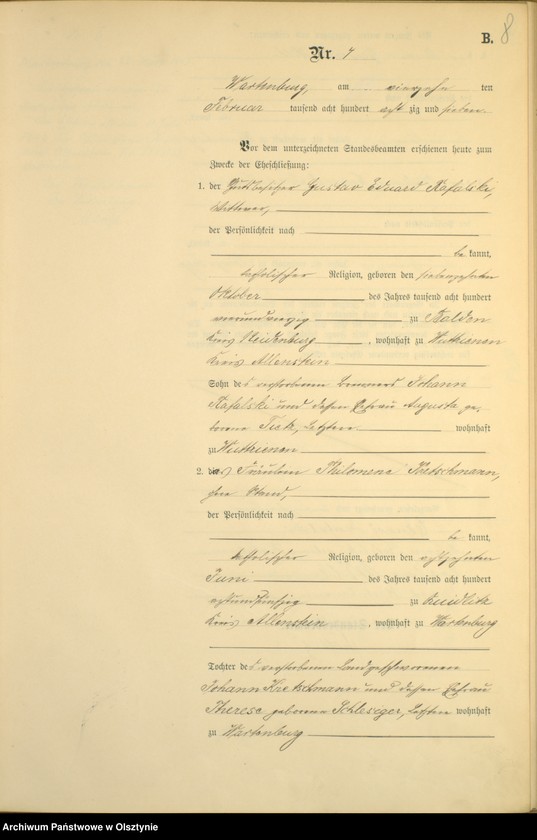 B. 8
Nr. 4
Wartenburg, am vierzehn ten
Februar tausend acht hundert acht zig und sieben
Vor dem unterzeichneten Standesbeamten erschienen heute zum
Zwecke der Eheschließung:
1. der Gutsbesitzer Gustav Eduard Rafalski,
Wittwer,
der Persönlichkeit nach
be kannt,
katholischer Religion, geboren den siebenzehnten
Oktober des Jahres tausend acht hundert
vierundvierzig zu
Kreis Neidenburg, wohnhaft zu Wuttrienen
Kreis Allenstein
Sohn des verstorbenen Johann
Rafalski und dessen Ehefrau Auguste ge-
borene, Letztere wohnhaft
zu Wuttrienen
2. die Fräulein Philomena Kretschmann,
ohne Stand,
der Persönlichkeit nach
be kannt,
katholischer Religion, geboren den achtzehnten
Juni des Jahres tausend acht hundert
achtundfünfzig zu
Kreis Allenstein, wohnhaft zu Wartenburg
Tochter des verstorbenen Landgeschworenen
Johann Kretschmann und dessen Ehefrau
Therese geborene Schlesiger, Letztere wohnhaft
zu Wartenburg
Archiwum Państwowe w Olsztynie